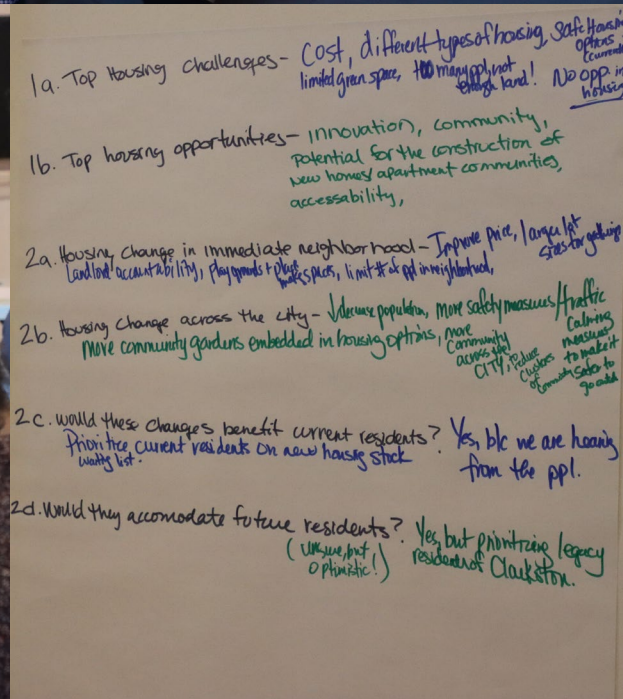 1a. Top Housing Challenges- Cost, different types of housing, Safe Housing options (current
limited green space, too many ppl, not enough land! No opp. in housing
1b. Top housing opportunities- innovation, community,
Potential for the construction of
new homes/apartment communities,
accessability,
2a. Housing Change in immediate neighborhood- Improve price, larger lot sizes for
Landlord accountability, playgrounds + play spaces, limit # of ppl in neighborhood,
2b. Housing Change across the city- ↓ decrease population, more safety measures/traffic calming measures to make it safer to go outside
More community gardens embedded in housing options, more community across the CITY, to reduce clusters of community
2c. would these changes benefit current residents? Yes, b/c we are hearing
Prioritize current residents on new housing stock from the ppl.
waiting list.
2d. Would they accomodate future residents? Yes, but prioritizing legacy
(unsure, but residents of Clarkston.
optimistic!)